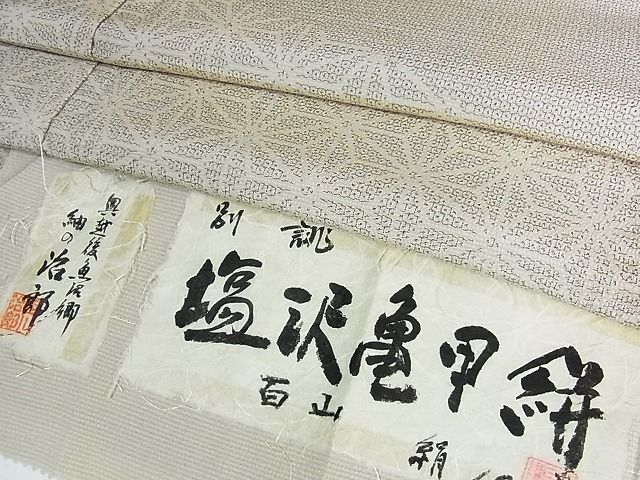 別誂
塩沢亀甲絣
百山
絹
奥越後魚沼郷
紬の治郎